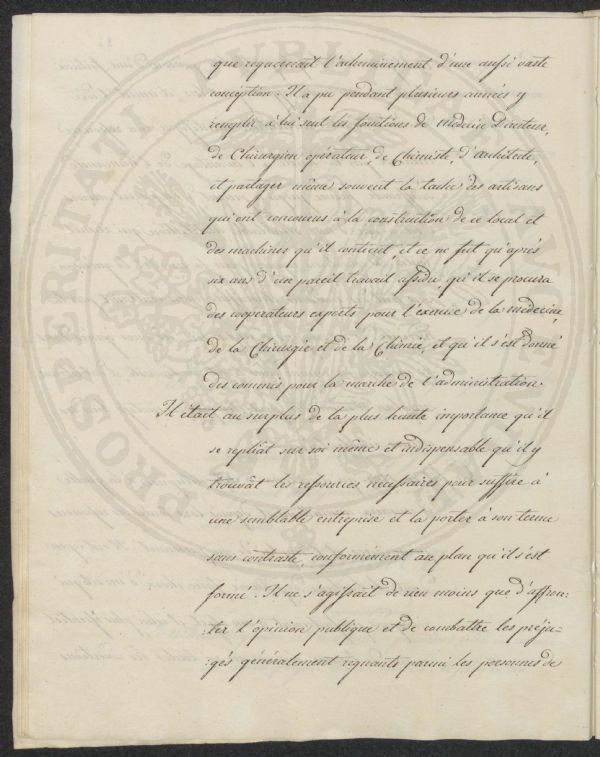 que requererait l'acheminement d'une aussi vaste
conception. Il a pu pendant plusieurs années y
remplir à lui seul les fonctions de Médecin Directeur,
de Chirurgien opérateur, de Chimiste, d'architecte,
et partager même souvent la tache des artisans
qui ont concourus à la construction de ce local et
des machines qu'il contient, et ce ne fut qu'après
six ans d'un pareil travail assidu qu'il se procura
des cooperateurs experts pour l'exercice de la médecine,
de la Chirurgie et de la Chimie, et qu'il s'est donné
des commis pour la marche de l'administration.
Il était au surplus de la plus haute importance qu'il
se repliât sur soi même et indispensable qu'il y
trouvât les ressources nécessaires pour suffire à
une semblable entreprise et la porter à son terme
sans contraste, conformément au plan qu'il s'est
formé. Il ne s'agissait de rien moins que d'affron:
:ter l'opinion publique et de combattre les préju:
:gés généralement regnants parmi les personnes de
PROSPERITATI PUBLICAE